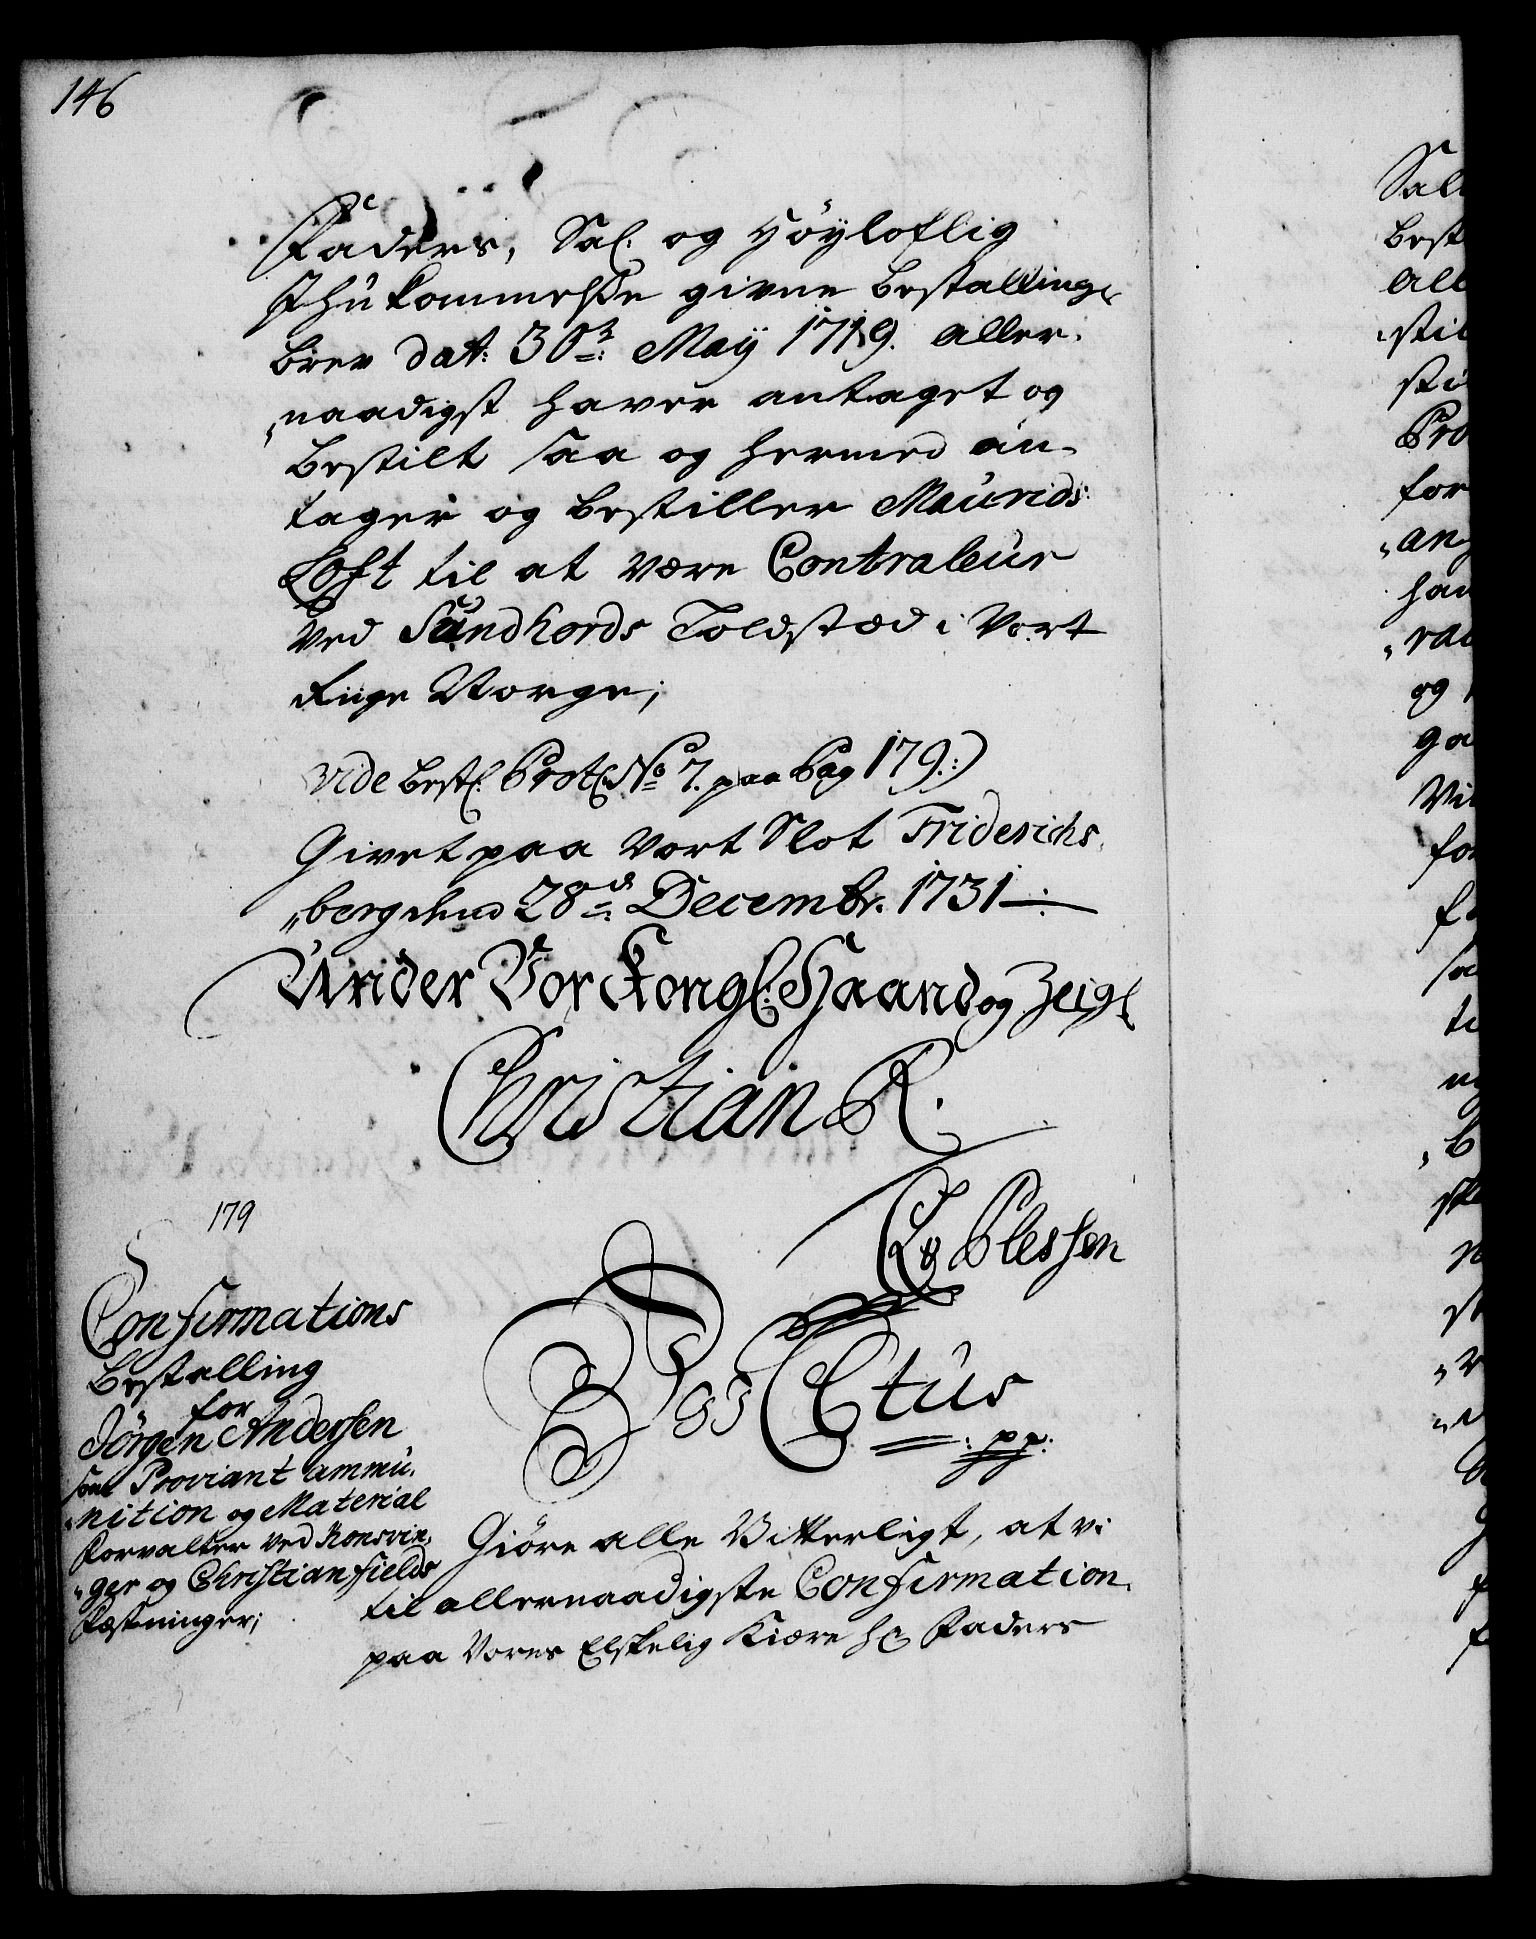 146
Faders, Sal. og Höyloflig
Ihukommelse givne Bestallings
Brev dat: 30te: Maÿ 1719. aller,
„naadigst haver antaget og
Bestilt saa og hermed an-
tager og bestiller Maurids
Loft til at være Contraleur
ved Sundhords Toldstæd i Vort
Riige Norge;
vide Best. Protc. No 7. paa Pag 179.:)
Givet paa Vort Slot Friderichs,
„berg dend 28de Decembr. 1731
Under Vor Kongl. Haand og Zeigl
Christian R.
C. A. v. Plessen
179
Confirmations
Bestalling
for
Jörgen Anderssen
som Proviant ammu,
„nition og Material
Forvalter ved Konsvin,
„ger og Christiansfields
Fæstninger;
Vi C 6tus
:pp:
Giöre alle Vitterligt, at vi
til allernaadigste Confirmation
paa Vores Elskelig Kiære Hr Faders
Sal
best
all
stil
sti
Pro
for
„an
han
„rae
og
ga
Vi
for
f
sa
ti